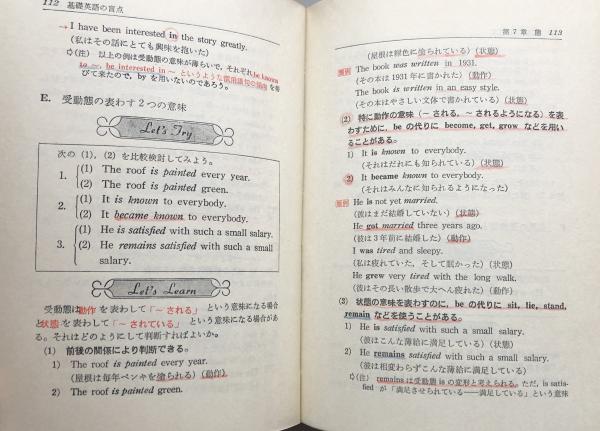 112 基礎英語の盲点
→ I have been interested in the story greatly.
(私はその話にとても興味を抱いた)
(注) 以上の例は受動態の意味が薄らいで、それぞれ be known
to ~, be interested in ~ というような慣用語句の傾向を帯
びて来たので、by を用いないのであろう。
E. 受動態の表わす2つの意味
Let's Try
次の (1), (2) を比較検討してみよう。
1. (1) The roof is painted every year.
(2) The roof is painted green.
2. (1) It is known to everybody.
(2) It became known to everybody.
3. (1) He is satisfied with such a small salary.
(2) He remains satisfied with such a small
salary.
Let's Learn
受動態は動作を表わして「~される」という意味になる場合
と状態を表わして「~されている」という意味になる場合があ
る。それはどのようにして判断すればよいか。
(1) 前後の関係により判断できる。
1) The roof is painted every year.
(屋根は毎年ペンキを塗られる) (動作)
2) The roof is painted green.
第7章 態 113
(屋根は緑色に塗られている) (状態)
類例 The book was written in 1931.
(その本は1931年に書かれた) (動作)
The book is written in an easy style.
(その本はやさしい文体で書かれている) (状態)
(2) 特に動作の意味 (~される, ~されるようになる) を表
わすために, be の代りに become, get, grow などを用い
ることがある。
1) It is known to everybody.
(それはだれにも知られている) (状態)
2) It became known to everybody.
(それはみんなに知られるようになった)
類例 He is not yet married.
(彼はまだ結婚していない) (状態)
He got married three years ago.
(彼は3年前に結婚した) (動作)
I was tired and sleepy.
(私は疲れていた, そして眠かった) (状態)
He grew very tired with the long walk.
(彼はその長い散歩で大へん疲れた) (動作)
(3) 状態の意味を表わすのに, be の代りに sit, lie, stand,
remain などを使うことがある。
1) He is satisfied with such a small salary.
(彼はこんな薄給に満足している) (状態)
2) He remains satisfied with such a small salary.
(彼は相変わらずこんな薄給に満足している) (状態)
(注) remains は受動態 is の変形と考えられる。ただ, is satis-
fied が「満足させられている——満足している」という意味